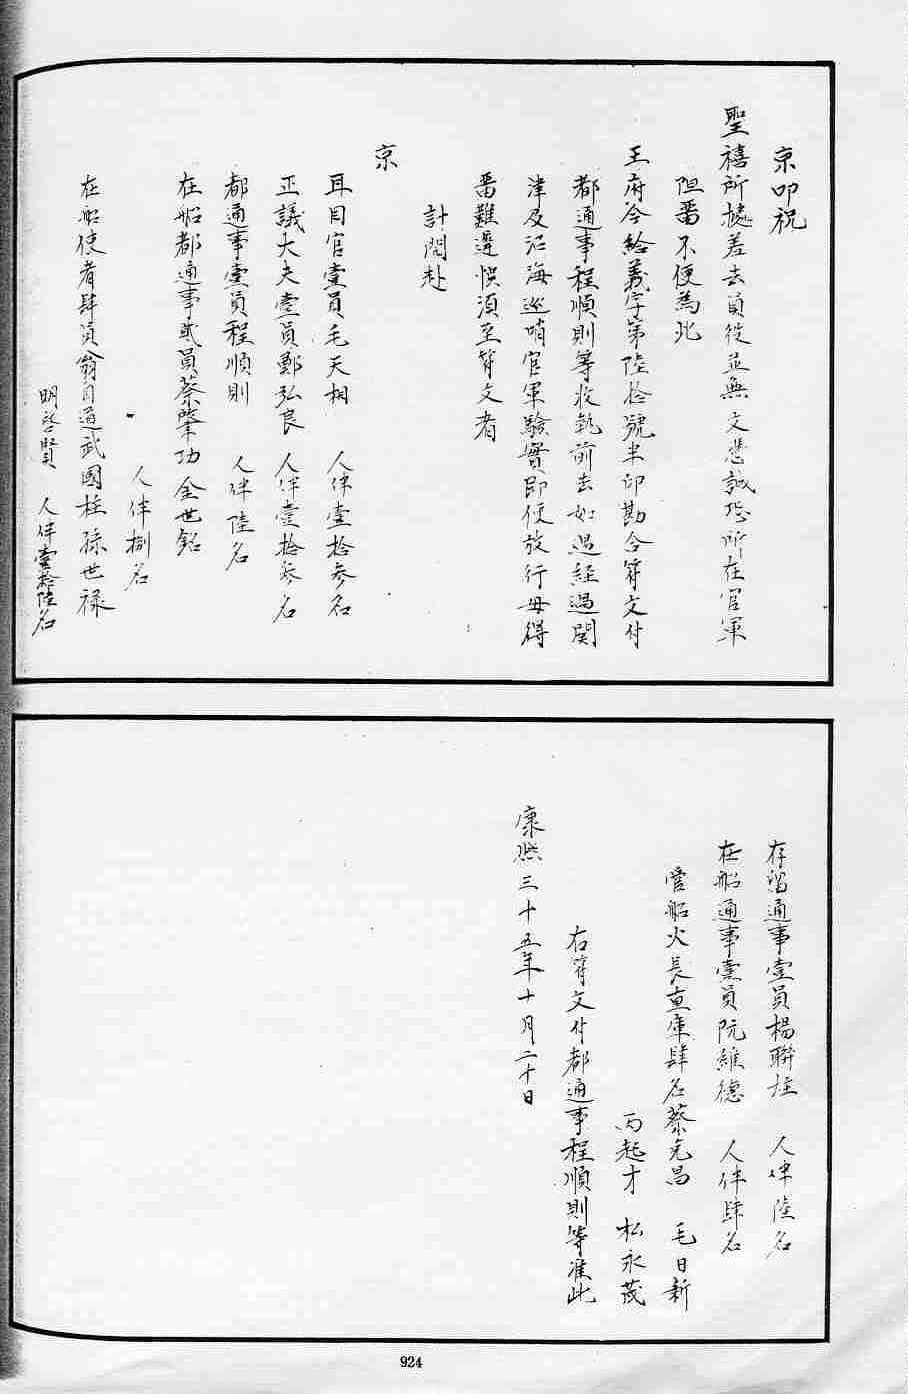 京叩祝
聖禧所據差去員役並無文憑誠恐所在官軍
阻畱不便為此
王府今給義字第陸拾號半印勘合符文付
都通事程順則等收執前去如遇經過関
津及沿海巡哨官軍驗實即便放行毋得
畱難遲悞須至符文者
計開赴
京
耳目官壹員毛天相 人伴壹拾參名
正議大夫壹員鄭弘良 人伴壹拾參名
都通事壹員程順則 人伴陸名
在船都通事貳員蔡肇功金世銘
人伴捌名
在船使者肆員翁自道武國柱孫世祿
明啓賢 人伴壹拾陸名
存留通事壹員楊聯桂 人伴陸名
在船通事壹員阮維德 人伴肆名
管船火長直庫肆名蔡元昌 毛日新
丙起才 松永茂
右符文付都通事程順則等准此
康熙三十五年十月二十日
924